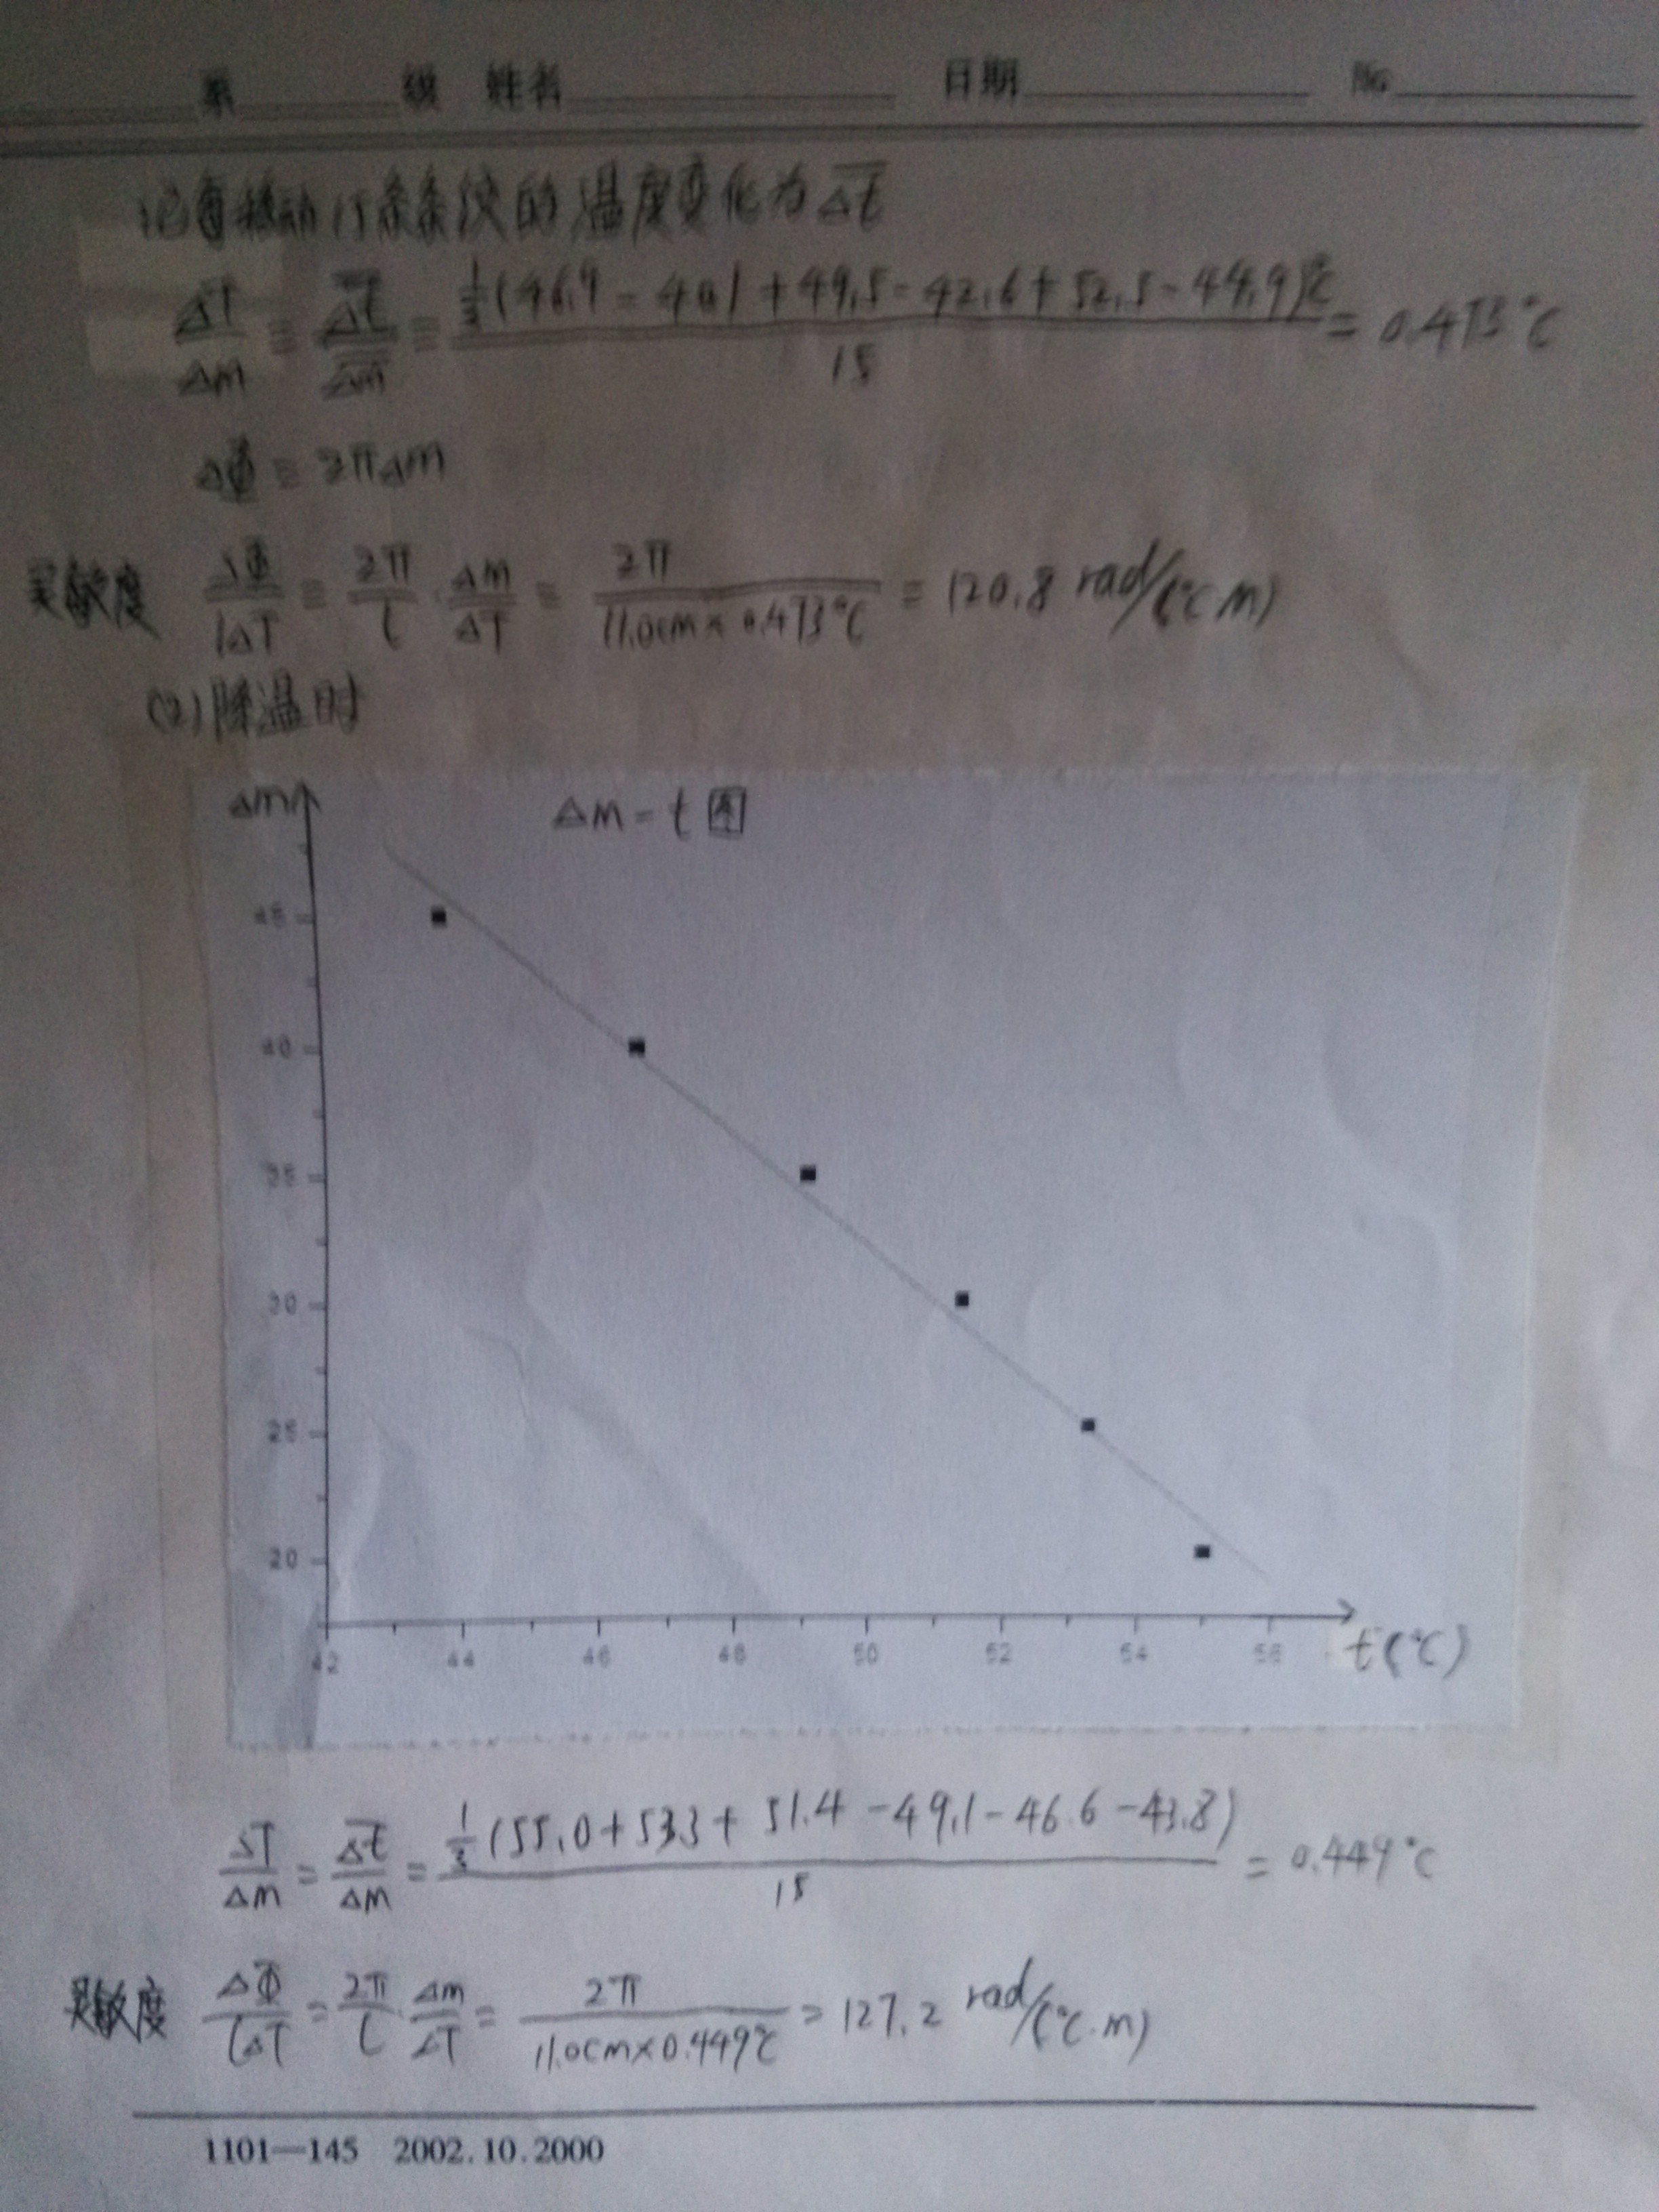 系 级 姓名 日期 №
记每移动15条条纹的温度变化为Δt̅
ΔT/Δm = Δt̅/Δm̅ = ⅓(46.9-40.1+49.5-42.6+52.5-44.9)℃/15 = 0.473℃
ΔΦ = 2πΔm
灵敏度 ΔΦ/lΔT = 2π/l · Δm/ΔT = 2π/11.0cm×0.473℃ = 120.8 rad/(℃ m)
(2)降温时
Δm
Δm-t图
45
40
35
30
25
20
42 44 46 48 50 52 54 56 t(℃)
ΔT/Δm = Δt̅/Δm = ⅓(55.0+53.3+51.4-49.1-46.6-43.8)/15 = 0.449℃
灵敏度 ΔΦ/lΔT = 2π/l · Δm/ΔT = 2π/11.0cm×0.449℃ = 127.2 rad/(℃·m)
1101—145 2002.10.2000